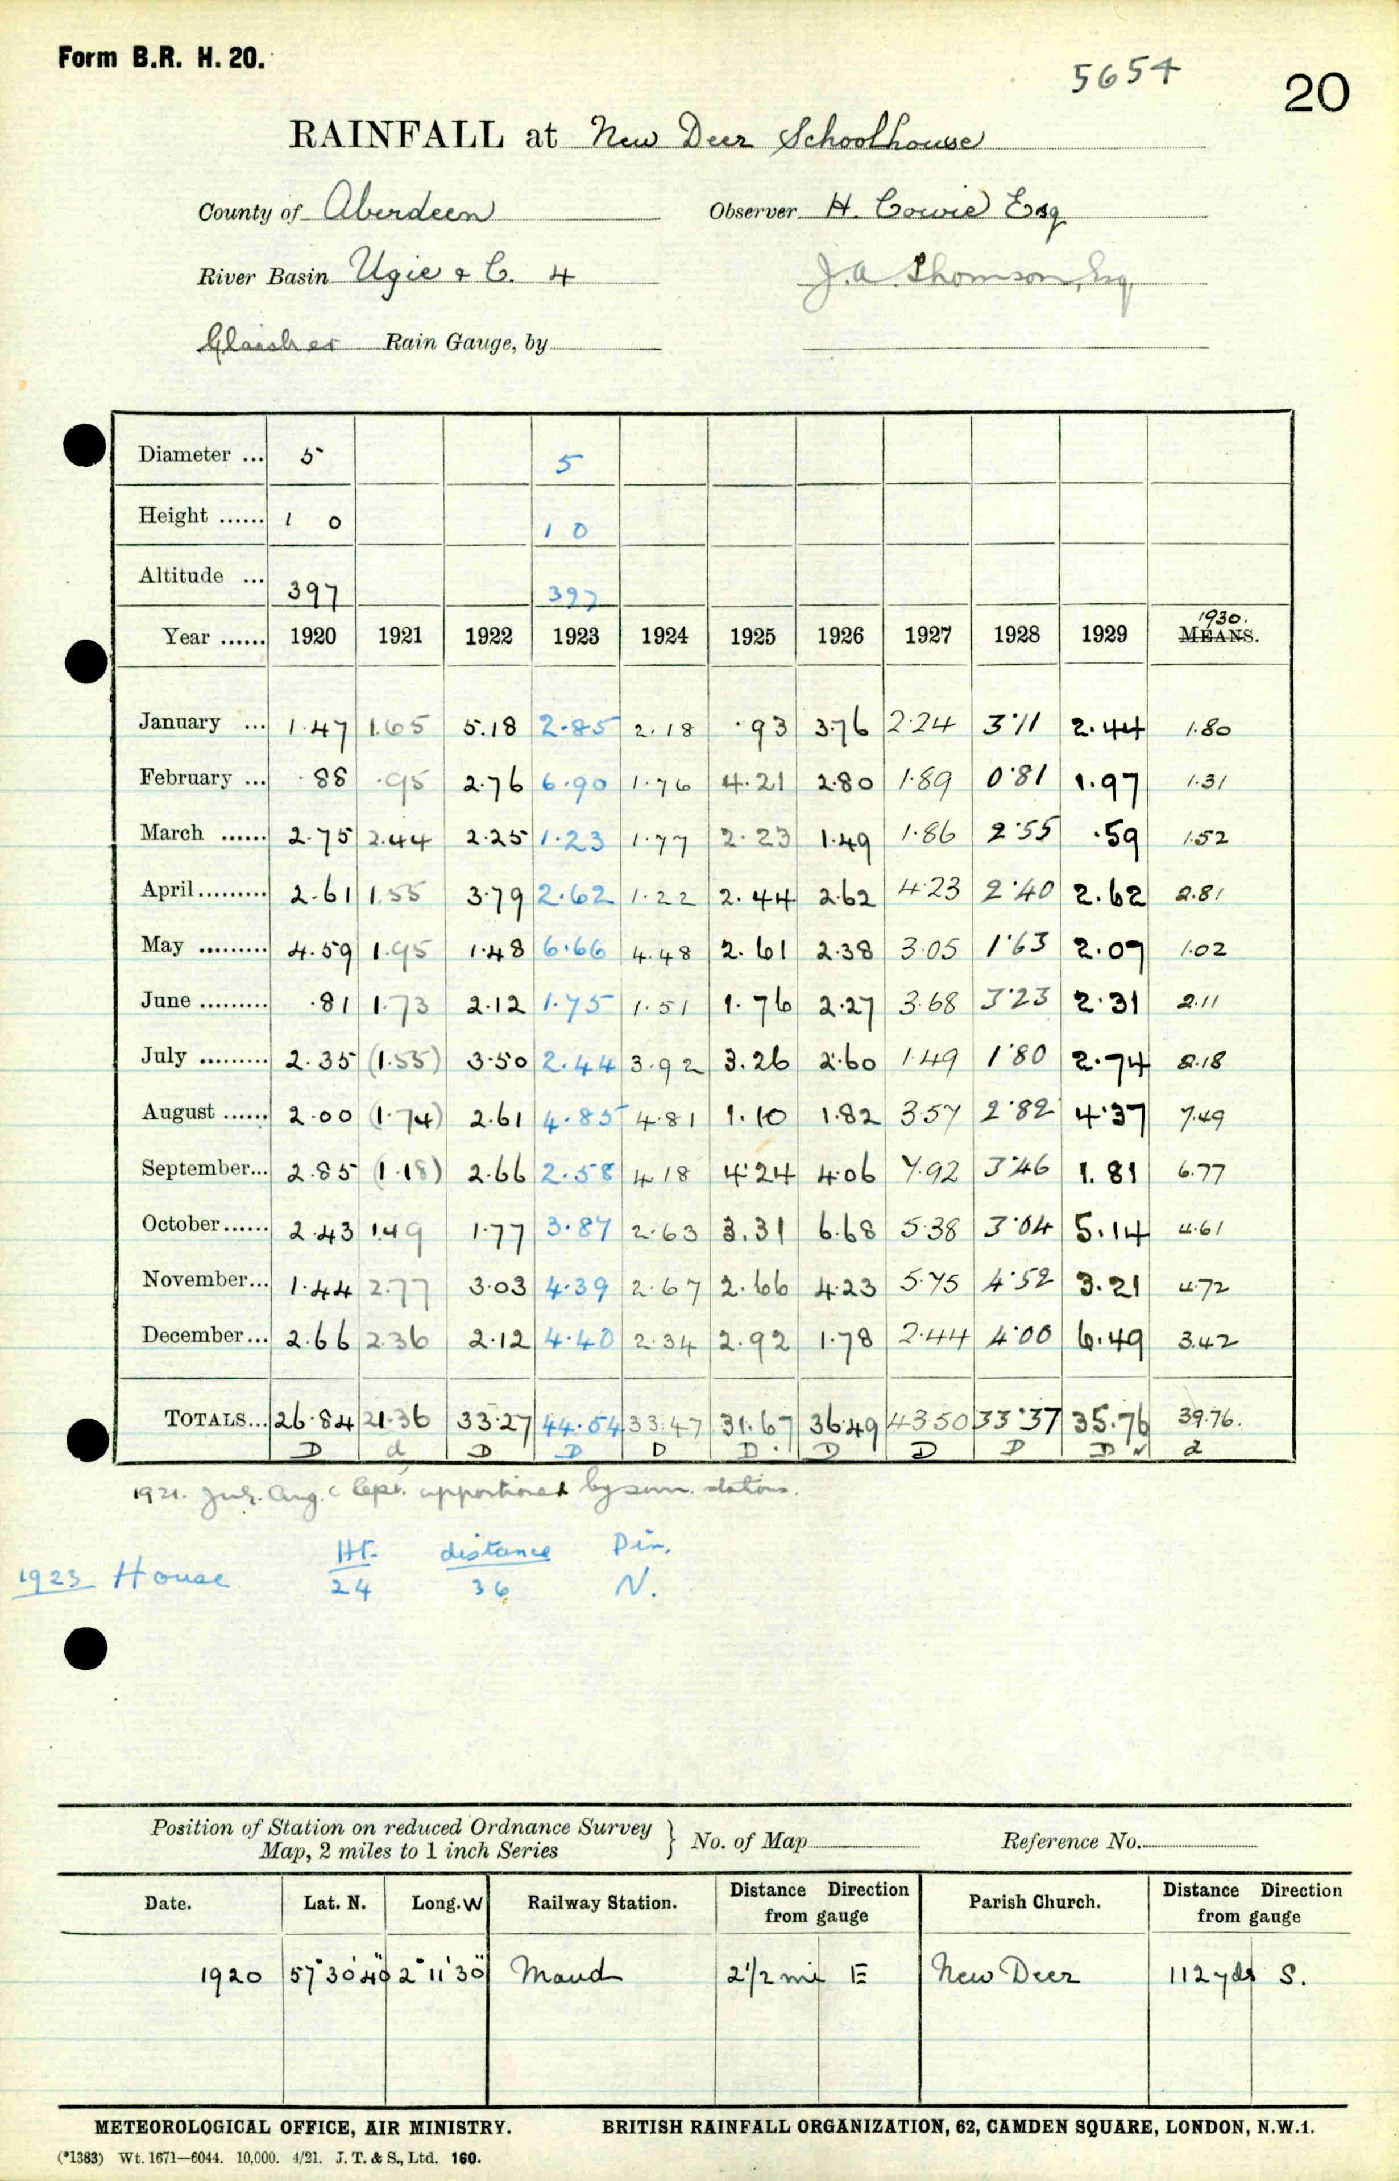 Form B.R. H. 20.
5654
20
RAINFALL at New Deer Schoolhouse
County of Aberdeen Observer H. Cowie Esq
River Basin Ugie & C. 4 J.A. Thomson, Esq.
Glaisher Rain Gauge, by
Diameter ... 5 5
Height ...... 1 0 1 0
Altitude ... 397 397
1930.
Year ...... 1920 1921 1922 1923 1924 1925 1926 1927 1928 1929 MEANS.
January ... 1.47 1.65 5.18 2.85 2.18 .93 3.76 2.24 3.11 2.44 1.80
February ... .88 .95 2.76 6.90 1.76 4.21 2.80 1.89 0.81 1.97 1.31
March ...... 2.75 2.44 2.25 1.23 1.77 2.23 1.49 1.86 2.55 .59 1.52
April ......... 2.61 1.55 3.79 2.62 1.22 2.44 2.62 4.23 2.40 2.62 2.81
May ......... 4.59 1.95 1.48 6.66 4.48 2.61 2.38 3.05 1.63 2.07 1.02
June ......... .81 1.73 2.12 1.75 1.51 1.76 2.27 3.68 3.23 2.31 2.11
July ......... 2.35 (1.55) 3.50 2.44 3.92 3.26 2.60 1.49 1.80 2.74 2.18
August ...... 2.00 (1.74) 2.61 4.85 4.81 1.10 1.82 3.57 2.82 4.37 7.49
September... 2.85 (1.18) 2.66 2.58 4.18 4.24 4.06 7.92 3.46 1.81 6.77
October ...... 2.43 1.49 1.77 3.87 2.63 3.31 6.68 5.38 3.04 5.14 4.61
November... 1.44 2.77 3.03 4.39 2.67 2.66 4.23 5.75 4.52 3.21 4.72
December... 2.66 2.36 2.12 4.40 2.34 2.92 1.78 2.44 4.00 6.49 3.42
TOTALS... 26.84 21.36 33.27 44.54 33.47 31.67 36.49 43.50 33.37 35.76 39.76.
D d D D D D. D D D D d
1921. July. Aug. & Sept. apportioned by surr. stations.
Ht. distance Dir.
1923 House 24 36 N.
Position of Station on reduced Ordnance Survey
Map, 2 miles to 1 inch Series } No. of Map Reference No.
Date. Lat. N. Long. W Railway Station. Distance Direction from gauge Parish Church. Distance Direction from gauge
1920 57° 30' 40" 2° 11' 30" Maud 2 1/2 mi E New Deer 112 yds S.
METEOROLOGICAL OFFICE, AIR MINISTRY. BRITISH RAINFALL ORGANIZATION, 62, CAMDEN SQUARE, LONDON, N.W.1.
(*1383) Wt. 1671—6044. 10,000. 4/21. J. T. & S., Ltd. 160.